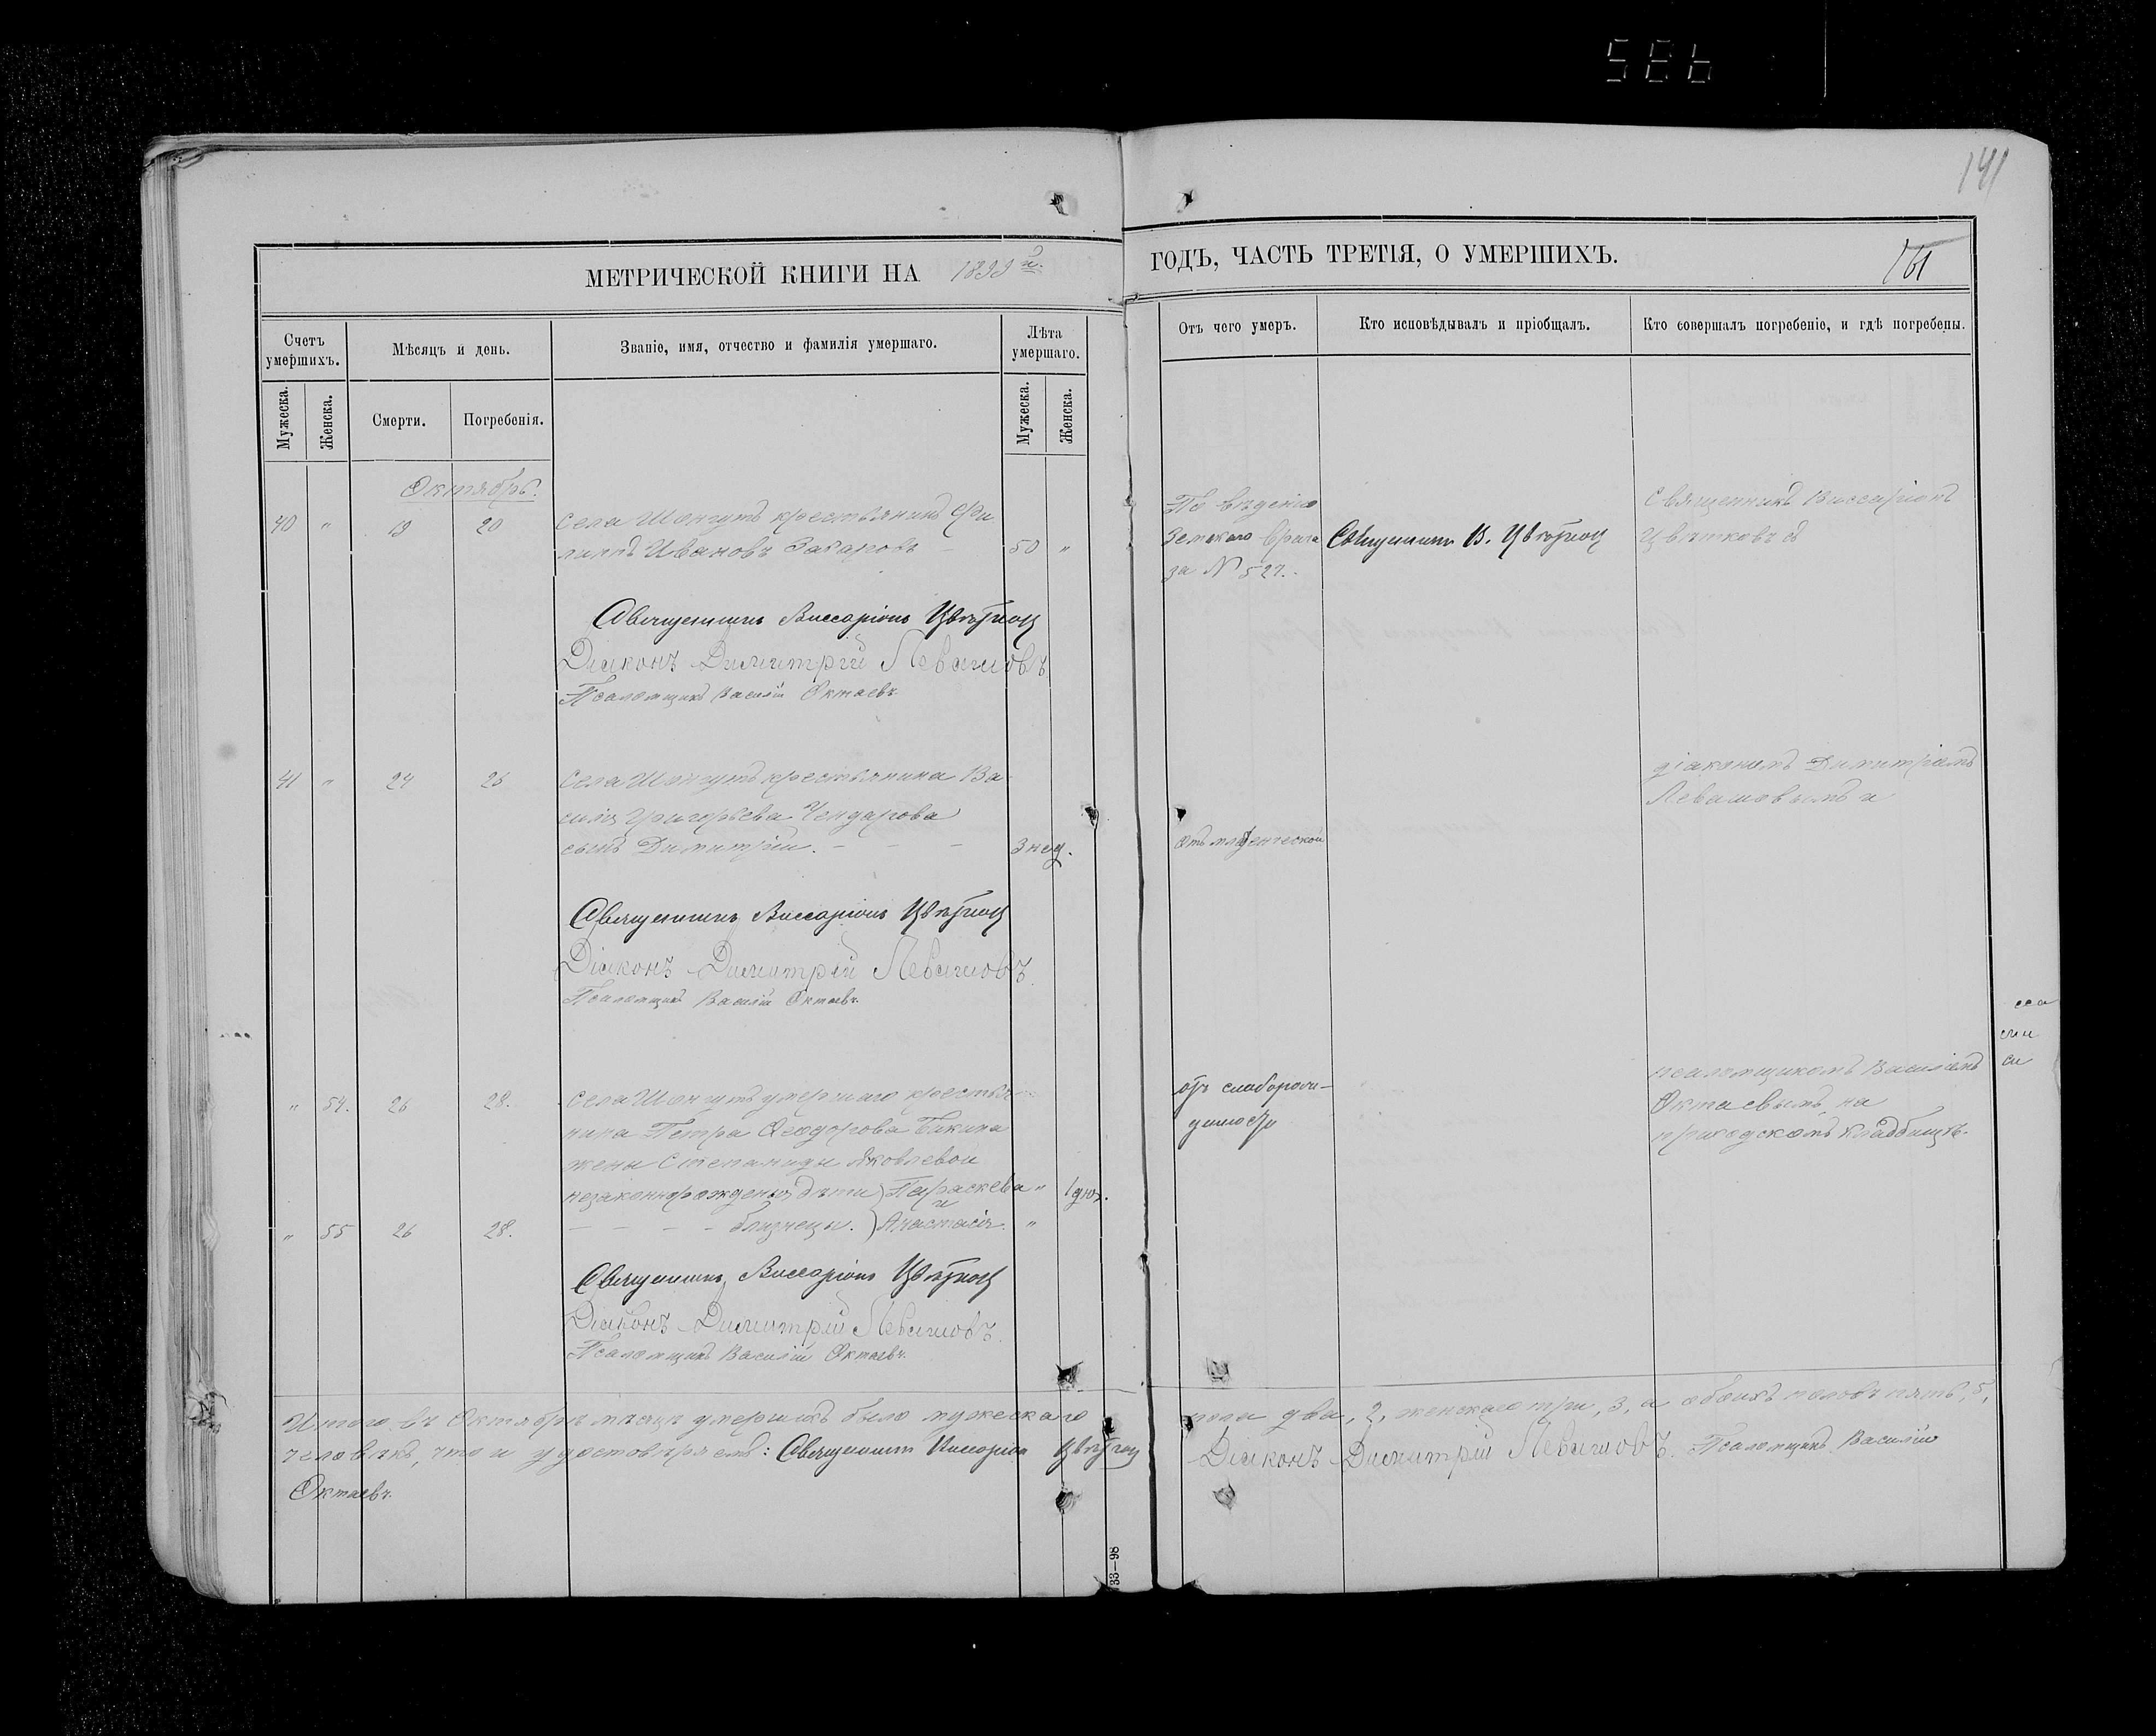 586
141
МЕТРИЧЕСКОЙ КНИГИ НА 1899й.
ГОДЪ, ЧАСТЬ ТРЕТІЯ, О УМЕРШИХЪ.
161
Счетъ умершихъ.
Мѣсяцъ и день.
Званіе, имя, отчество и фамилія умершаго.
Лѣта умершаго.
Отъ чего умеръ.
Кто исповѣдывалъ и пріобщалъ.
Кто совершалъ погребеніе, и гдѣ погребены.
Мужеска.
Женска.
Смерти.
Погребенія.
Мужеска.
Женска.
Октябрь.
40 " 19 20 Села Шонгутъ крестьянинъ Фи
липпъ Ивановъ Захаровъ — 50 "
По вѣденію
Земскаго врача
за № 527.
Священникъ В. Цвѣтков
Священникъ Виссаріонъ
Цвѣтковъ съ
Священникъ Виссаріонъ Цвѣтков
Діаконъ Димитрій Левашовъ
Псаломщикъ Василій Октаевъ
41 " 24 26 Села Шонгутъ крестьянина Ва
силія Григорьева Чендарова
сынъ Димитрій. — — — 3 нед.
Отъ младенческой
діакономъ Димитріемъ
Левашовымъ и
Священникъ Виссаріонъ Цвѣтков
Діаконъ Димитрій Левашовъ.
Псаломщикъ Василій Октаевъ.
" 54. 26 28. Села Шонгутъ умершаго крестья-
нина Петра Ѳеодорова Бикина
жены Степаниды Яковлевой
незаконнорожденыя дѣти } Параскева " 1 дня.
и
" 55 26 28. — — — - близнецы. } Анастасія. "
отъ слаборож-
денности
псаломщикомъ Василіемъ
Октаевымъ, на
приходскомъ кладбищѣ.
Священникъ Виссаріонъ Цвѣтков
Діаконъ Димитрій Левашовъ.
Псаломщикъ Василій Октаевъ.
Итого въ Октябрѣ мѣсяцѣ умершихъ было мужескаго пола два, 2, женскаго три, 3, а обоихъ половъ пять, 5,
человѣкъ, что и удостовѣряемъ: Священникъ Виссаріонъ Цвѣтков Діаконъ Димитрій Левашовъ. Псаломщикъ Василій
Октаевъ.
33—98